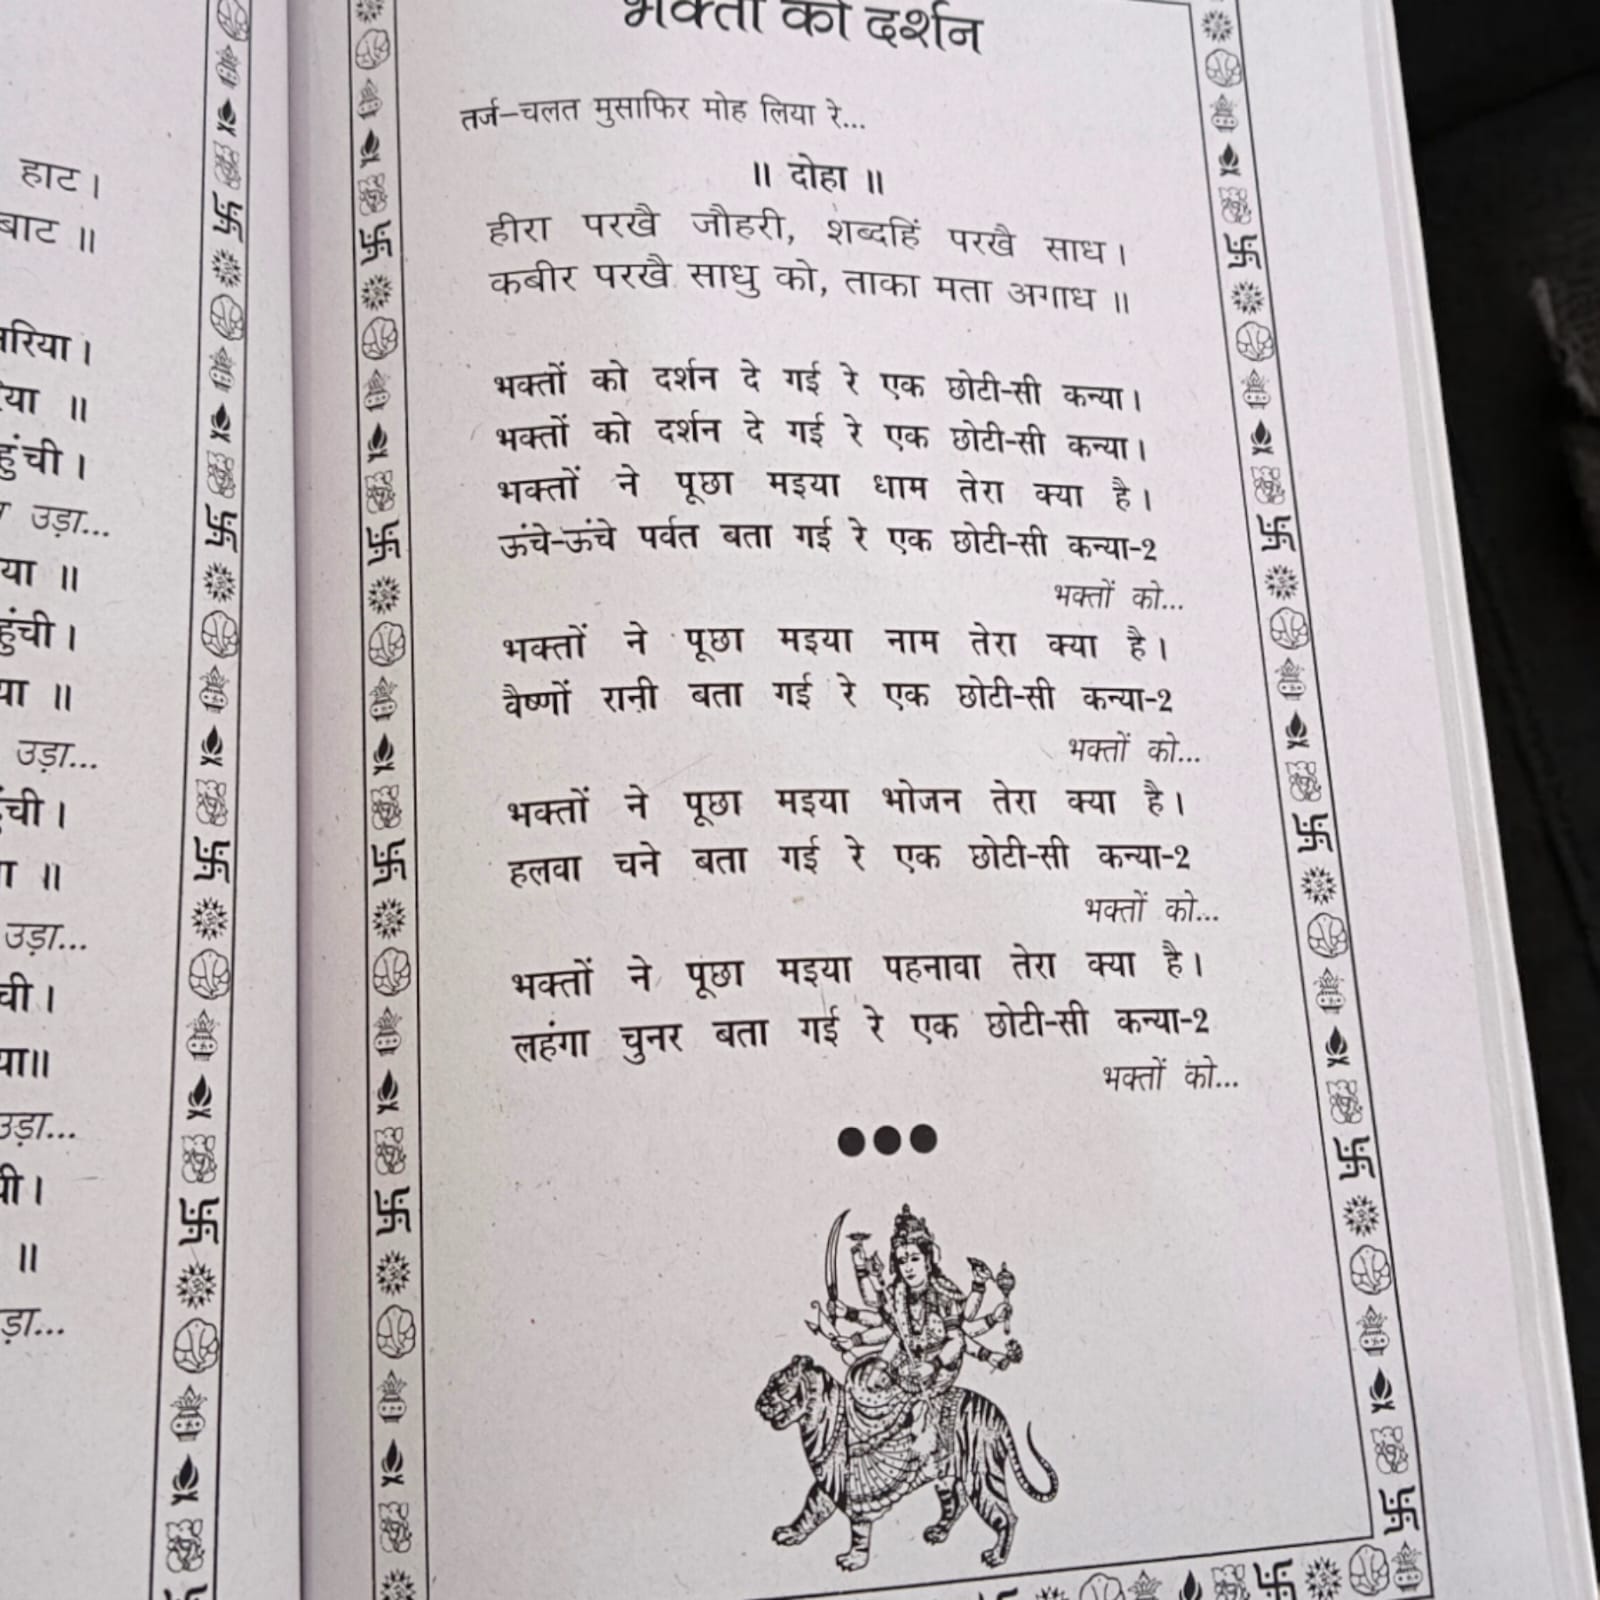 हाट।
बाट ॥
रिया।
या ॥
हुंची।
उड़ा...
या ॥
हुंची।
या ॥
उड़ा...
ंची।
ा ॥
उड़ा...
ची।
या॥
उड़ा...
ची।
॥
ड़ा...
भक्तों को दर्शन
तर्ज–चलत मुसाफिर मोह लिया रे...
॥ दोहा ॥
हीरा परखै जौहरी, शब्दहिं परखै साध।
कबीर परखै साधु को, ताका मता अगाध ॥
भक्तों को दर्शन दे गई रे एक छोटी-सी कन्या।
भक्तों को दर्शन दे गई रे एक छोटी-सी कन्या।
भक्तों ने पूछा मइया धाम तेरा क्या है।
ऊंचे-ऊंचे पर्वत बता गई रे एक छोटी-सी कन्या-2
भक्तों को...
भक्तों ने पूछा मइया नाम तेरा क्या है।
वैष्णों रानी बता गई रे एक छोटी-सी कन्या-2
भक्तों को...
भक्तों ने पूछा मइया भोजन तेरा क्या है।
हलवा चने बता गई रे एक छोटी-सी कन्या-2
भक्तों को...
भक्तों ने पूछा मइया पहनावा तेरा क्या है।
लहंगा चुनर बता गई रे एक छोटी-सी कन्या-2
भक्तों को...